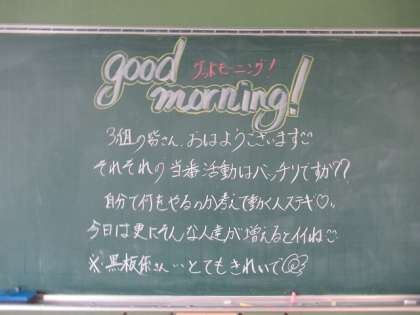 good
グッドモーニング!
morning!
3組の皆さん、おはようございます
それぞれの当番活動はバッチリですか??
自分で何をやるのか考えて動く人ステキ♡。
今日は更にそんな人達が増えるとイイね
※黒板係さん…とてもきれいで